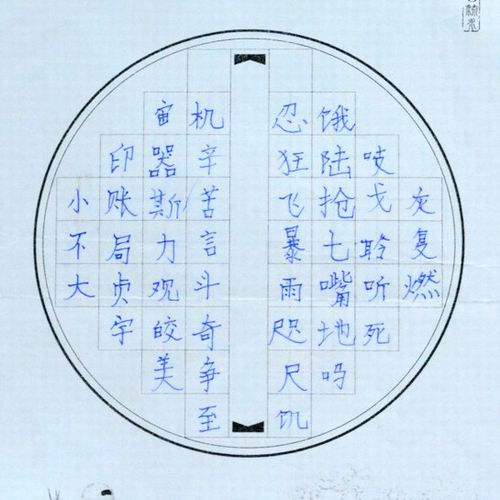 小不大
印账局贞宇
宙器斯力观皎美
机辛苦言斗奇争至
忍狂飞暴雨咫尺饥
饿陆抢七嘴地吗
吱戈聆听死
灰复燃